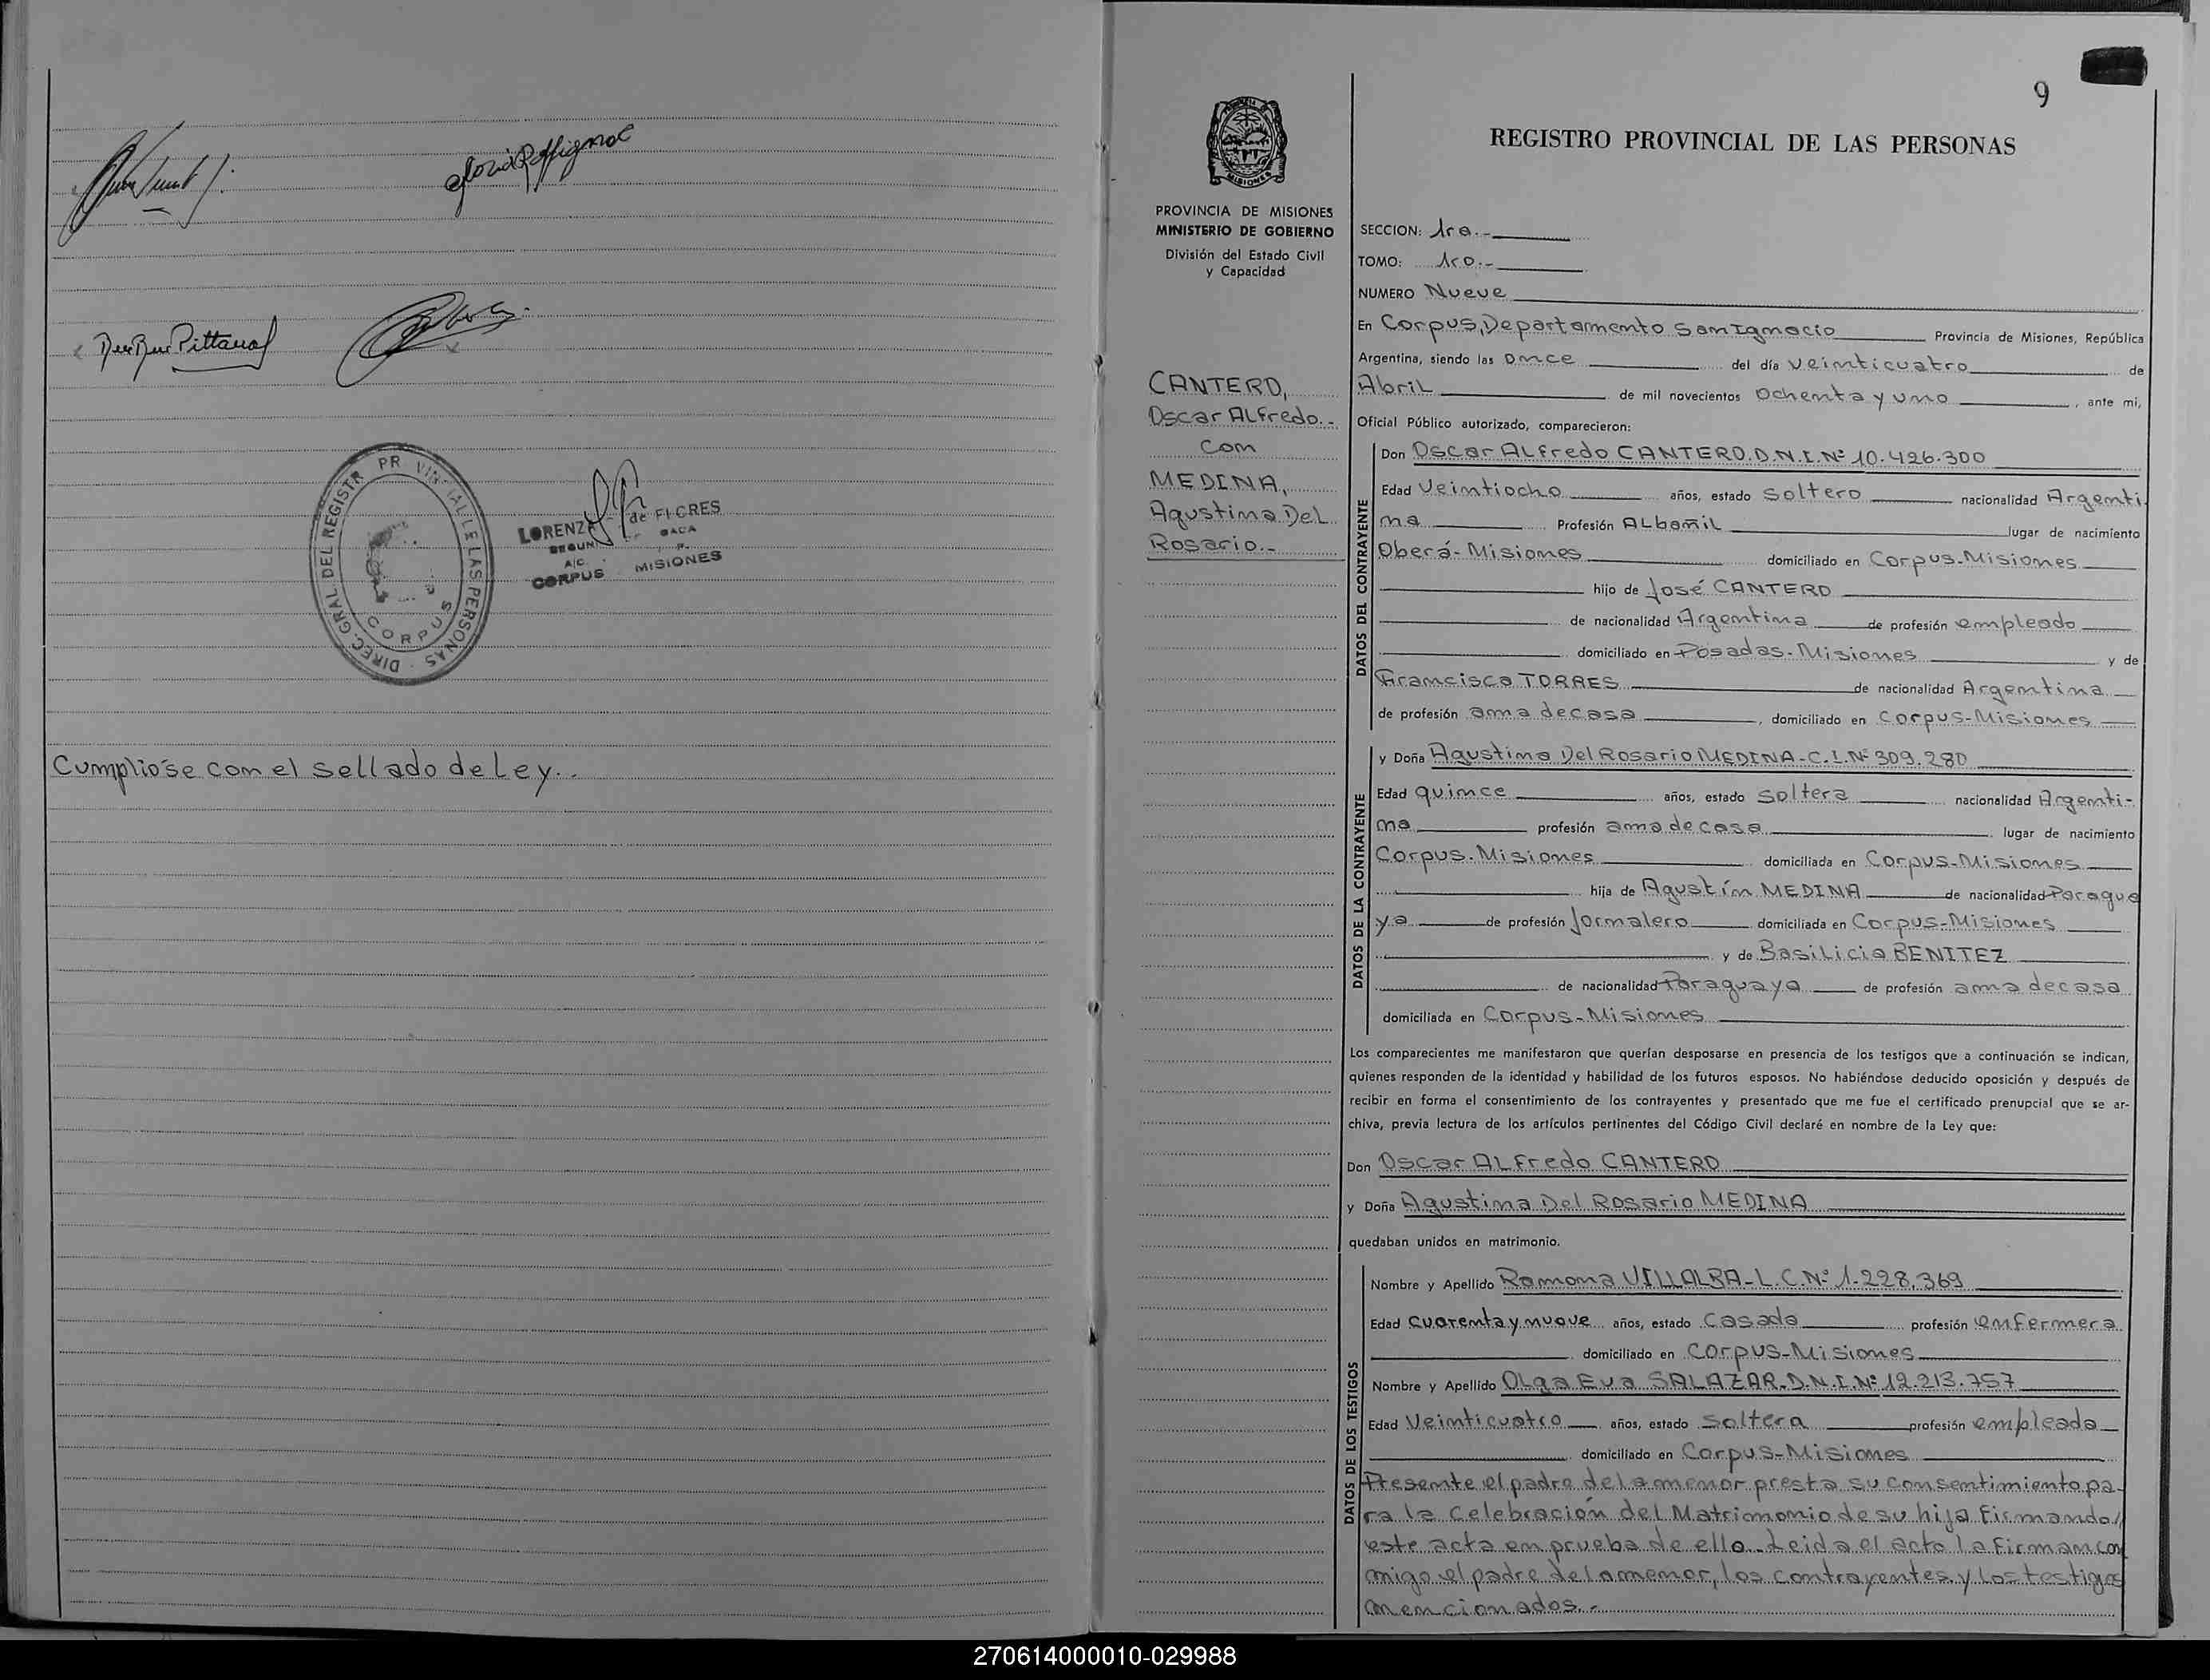 Cumplióse con el sellado de Ley..
DIREC. GRAL DEL REGISTR PR VIN IAL LE LAS PERSONAS
CORPUS
LORENZ de FLORES
A/C.
CORPUS MISIONES
9
REGISTRO PROVINCIAL DE LAS PERSONAS
PROVINCIA DE MISIONES
MINISTERIO DE GOBIERNO
División del Estado Civil
y Capacidad
CANTERO,
Oscar ALfredo.-
con
MEDINA,
Agustina Del
Rosario.-
SECCION: 1ra.-
TOMO: 1ro.-
NUMERO Nueve
En Corpus, Departamento San Ignacio Provincia de Misiones, República
Argentina, siendo las Once del día veinticuatro de
Abril de mil novecientos Ochenta y uno, ante mi,
Oficial Público autorizado, comparecieron:
DATOS DEL CONTRAYENTE
Don Oscar ALfredo CANTERO.D.N.I.Nº 10.426.300
Edad Veintiocho años, estado Soltero nacionalidad Argenti
na Profesión ALbañil lugar de nacimiento
Oberá-Misiones domiciliado en Corpus-Misiones
hijo de José CANTERO
de nacionalidad Argentina de profesión empleado
domiciliado en Posadas-Misiones y de
Francisca TORRES de nacionalidad Argentina
de profesión ama de casa, domiciliado en Corpus-Misiones
DATOS DE LA CONTRAYENTE
y Doña Agustina Del Rosario MEDINA-C.I.Nº 309.280
Edad quince años, estado soltera nacionalidad Argenti-
na profesión ama de casa lugar de nacimiento
Corpus.Misiones domiciliada en Corpus-Misiones
hija de Agustín MEDINA de nacionalidad Paragua
ya de profesión Jornalero domiciliada en Corpus-Misiones
y de BasiLicia BENITEZ
de nacionalidad Paraguaya de profesión ama de casa
domiciliada en Corpus-Misiones
Los comparecientes me manifestaron que querían desposarse en presencia de los testigos que a continuación se indican,
quienes responden de la identidad y habilidad de los futuros esposos. No habiéndose deducido oposición y después de
recibir en forma el consentimiento de los contrayentes y presentado que me fue el certificado prenupcial que se ar-
chiva, previa lectura de los artículos pertinentes del Código Civil declaré en nombre de la Ley que:
Don Oscar ALfredo CANTERO
y Doña Agustina Del Rosario MEDINA
quedaban unidos en matrimonio.
DATOS DE LOS TESTIGOS
Nombre y Apellido Ramona VILLALBA-L.C.Nº 1.228.369
Edad Cuarenta y nueve años, estado Casada profesión enfermera
domiciliado en Corpus-Misiones
Nombre y Apellido OLga Eva SALAZAR.D.N.I.Nº 12.213.757
Edad Veinticuatro años, estado Soltera profesión empleada
domiciliado en Corpus-Misiones
Presente el padre de la menor presta su consentimiento pa-
ra la Celebración del Matrimonio de su hija firmando/
este acta en prueba de ello. Leida el acta la firman con
migo el padre de la menor, los contrayentes y los testigos
mencionados.-
270614000010-029988